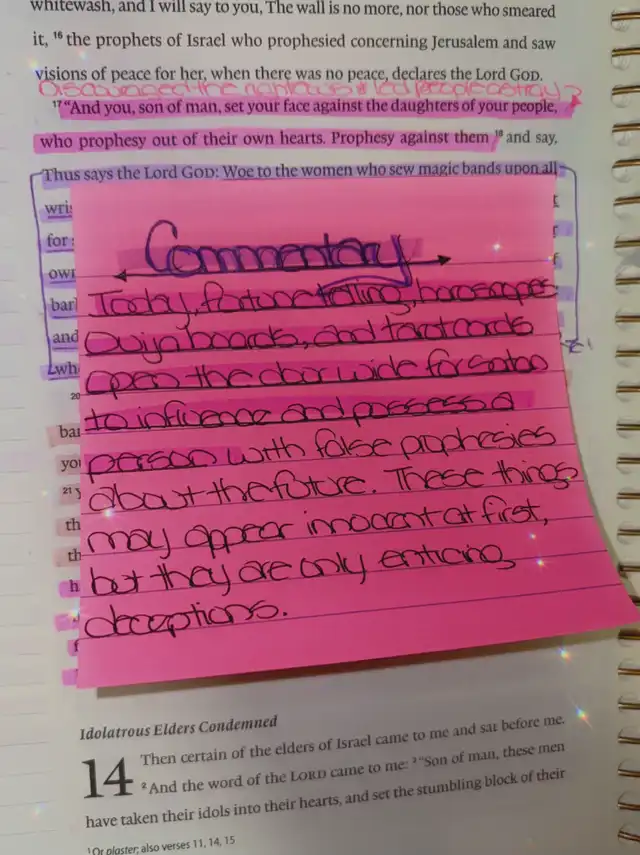 whitewash, and I will say to you, The wall is no more, nor those who smeared
it, 16 the prophets of Israel who prophesied concerning Jerusalem and saw
visions of peace for her, when there was no peace, declares the Lord GOD.
Discouraged the righteous & led people astray?
17 “And you, son of man, set your face against the daughters of your people,
who prophesy out of their own hearts. Prophesy against them 18 and say,
Thus says the Lord GOD: Woe to the women who sew magic bands upon all
wri
for
own
bar
and
wh
20
yo
21 y
th
th
h
Commentary
Today, fortune telling, horoscopes
Ouija boards, and tarot cards
open the door wide for satan
to influence and possess a
person with false prophesies
about the future. These things
may appear innocent at first,
but they are only enticing
deceptions.
Idolatrous Elders Condemned
14 Then certain of the elders of Israel came to me and sat before me.
2 And the word of the LORD came to me: 3 “Son of man, these men
have taken their idols into their hearts, and set the stumbling block of their
1 Or plaster; also verses 11, 14, 15